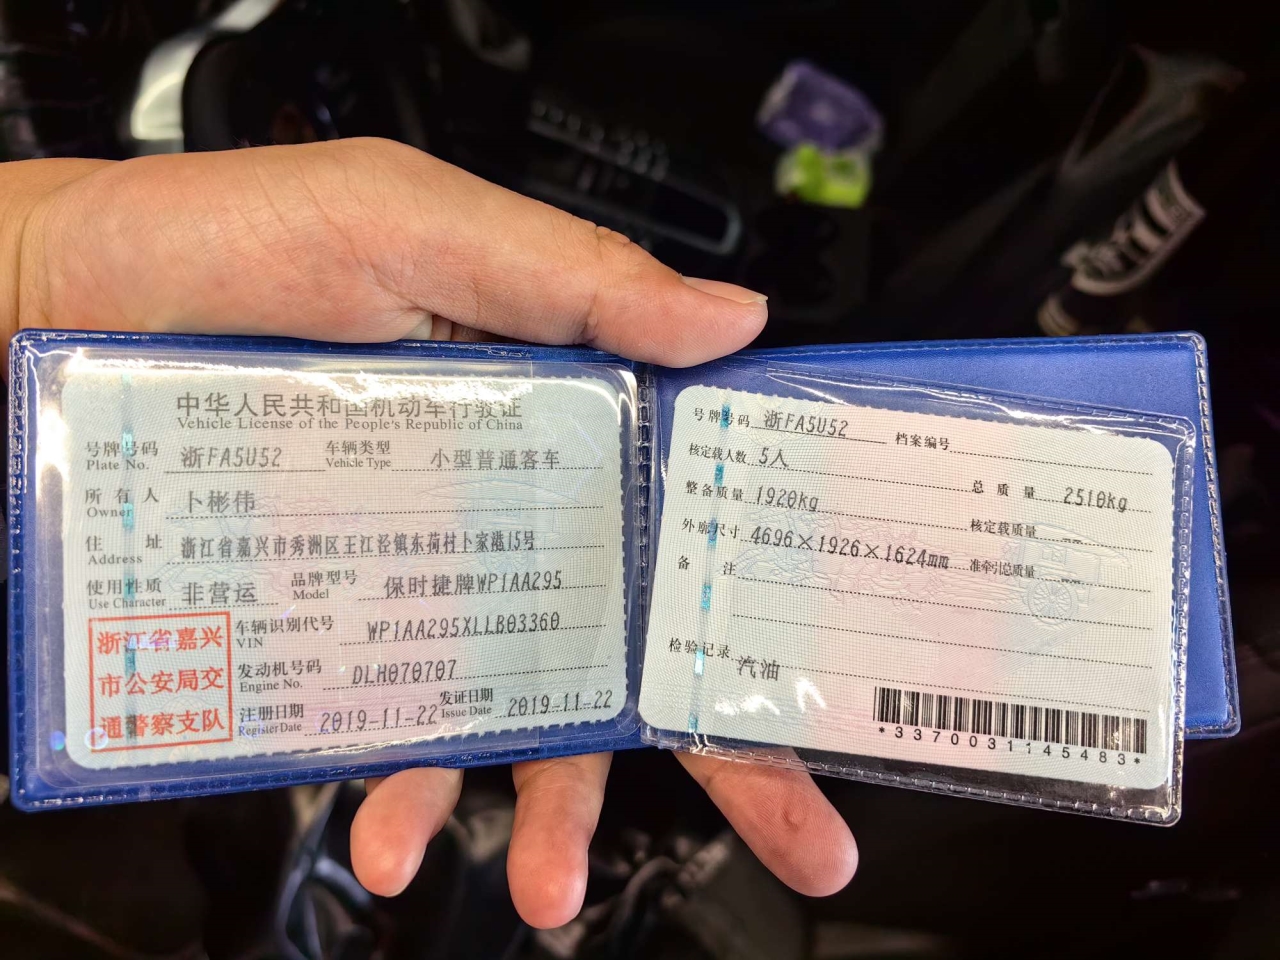 中华人民共和国机动车行驶证
Vehicle License of the People's Republic of China
号牌号码 浙FA5U52 车辆类型 小型普通客车
Plate No. Vehicle Type
所有人 卜彬伟
Owner
住址 浙江省嘉兴市秀洲区王江泾镇东荷村卜家港15号
Address
使用性质 非营运 品牌型号 保时捷牌WP1AA295
Use Character Model
浙江省嘉兴
市公安局交
通警察支队
车辆识别代号 WP1AA295XLLB03360
VIN
发动机号码 DLH070707
Engine No.
注册日期 2019-11-22 发证日期 2019-11-22
Register Date Issue Date
号牌号码 浙FA5U52 档案编号
核定载人数 5人 总质量 2510kg
整备质量 1920kg 核定载质量 --
外廓尺寸 4696×1926×1624mm 准牵引总质量 --
备注
检验记录 汽油
*3370031145483*